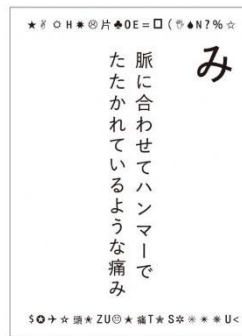 ★✌☼H✸☹片♣OE=□(🖐♠N?%☆
み
脈に合わせてハンマーで
たたかれているような痛み
$✪✈☆頭★ZU☺★痛T★S✲✳✴✷U<